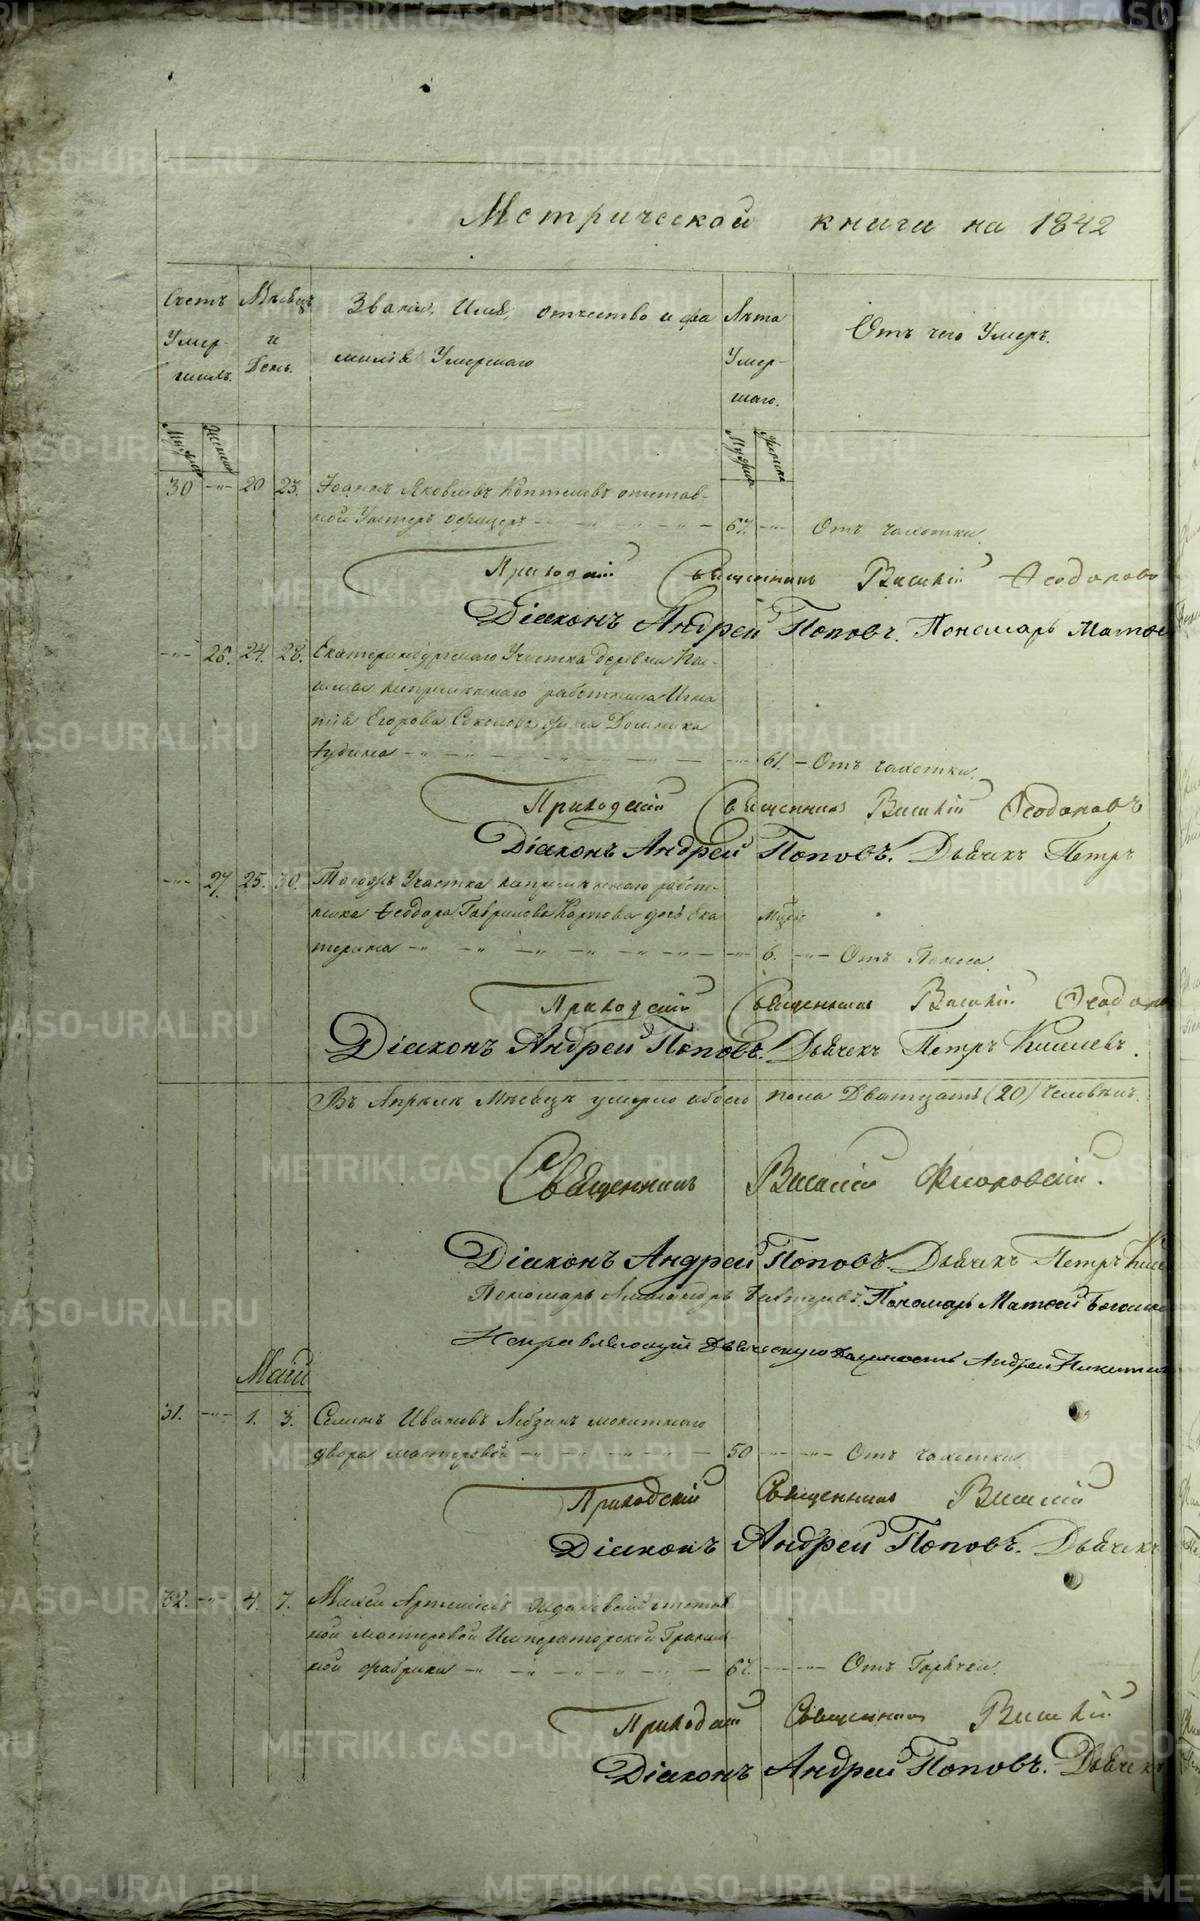 Метрической книги на 1842
Счетъ Умершихъ.
Мѣсяцъ и День.
Званіе, Имя, отчество и фамилія Умершаго
Лѣта Умершаго.
Отъ чего Умеръ.
30 -"- 20 23. Іоаннъ Яковлевъ Коптеловъ отстав-
ной Унтеръ офицеръ 67. Отъ чахотки.
Приходскій Священникъ Василій Ѳеодоровъ
Діаконъ Андрей Поповъ. Пономарь Матѳей
-"- 26. 24. 28. Екатеринбургскаго Участка деревни
непремѣннаго работника Игна
тія Егорова Соколова жена Домника
61. Отъ чахотки.
Приходскій Священникъ Василій Ѳеодоровъ
Діаконъ Андрей Поповъ. Дьячекъ Петръ
-"- 27. 25. 30. Тогожъ Участка непремѣннаго работ-
ника Ѳеодора Гаврилова Карпова дочь Ека
терина 6. Отъ Поноса.
Приходскій Священникъ Василій
Діаконъ Андрей Поповъ. Дьячекъ Петръ Киселевъ.
Въ Апрѣлѣ Мѣсяцѣ умерло обоего пола Двадцать (20) человѣкъ.
Священникъ Василій
Діаконъ Андрей Поповъ. Дьячекъ Петръ
Пономарь Александръ Пономарь Матѳей
Исправляющій Дьяческую Должность Андрей Никитинъ
Маій
31. -"- 1. 3. Иванъ монетнаго
двора мастеровой 50 Отъ чахотки
Приходскій Священникъ Василій
Діаконъ Андрей Поповъ. Дьячекъ
32. -"- 4. 7. отстав
ной мастеровой Императорской Гранил
ной фабрики 67. Отъ Горячки.
Приходскій Священникъ Василій
Діаконъ Андрей Поповъ. Дьячекъ
METRIKI.GASO-URAL.RU